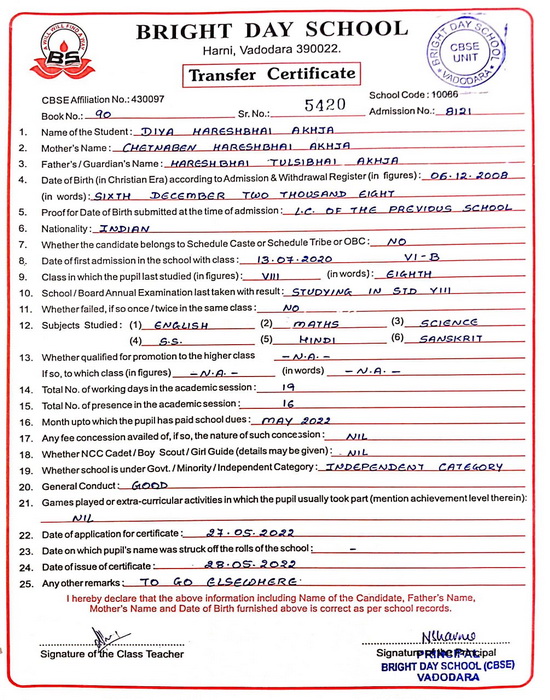 A WILL WILL FIND A WAY
BS
BRIGHT DAY SCHOOL
Harni, Vadodara 390022.
Transfer Certificate
BRIGHT DAY SCHOOL
CBSE
UNIT
VADODARA
CBSE Affiliation No.: 430097
School Code : 10066
Book No.: 90 Sr. No.: 5420 Admission No.: 8121
1. Name of the Student : DIYA HARESHBHAI AKHJA
2. Mother's Name : CHETNABEN HARESHBHAI AKHJA
3. Father's / Guardian's Name : HARESHBHAI TULSIBHAI AKHJA
4. Date of Birth (in Christian Era) according to Admission & Withdrawal Register (in figures) : 06.12.2008
(in words) : SIXTH DECEMBER TWO THOUSAND EIGHT
5. Proof for Date of Birth submitted at the time of admission : L.C. OF THE PREVIOUS SCHOOL
6. Nationality : INDIAN
7. Whether the candidate belongs to Schedule Caste or Schedule Tribe or OBC : NO
8. Date of first admission in the school with class : 13.07.2020 VI-B
9. Class in which the pupil last studied (in figures) : VIII (in words) : EIGHTH
10. School / Board Annual Examination last taken with result : STUDYING IN STD VIII
11. Whether failed, if so once / twice in the same class : NO
12. Subjects Studied : (1) ENGLISH (2) MATHS (3) SCIENCE
(4) S.S. (5) HINDI (6) SANSKRIT
13. Whether qualified for promotion to the higher class - N.A. -
If so, to which class (in figures) - N.A. - (in words) - N.A. -
14. Total No. of working days in the academic session : 19
15. Total No. of presence in the academic session : 16
16. Month upto which the pupil has paid school dues : MAY 2022
17. Any fee concession availed of, if so, the nature of such concession : NIL
18. Whether NCC Cadet / Boy Scout / Girl Guide (details may be given) : NIL
19. Whether school is under Govt. / Minority / Independent Category : INDEPENDENT CATEGORY
20. General Conduct : GOOD
21. Games played or extra-curricular activities in which the pupil usually took part (mention achievement level therein) :
NIL
22. Date of application for certificate : 27.05.2022
23. Date on which pupil's name was struck off the rolls of the school : -
24. Date of issue of certificate : 28.05.2022
25. Any other remarks : TO GO ELSEWHERE.
I hereby declare that the above information including Name of the Candidate, Father's Name,
Mother's Name and Date of Birth furnished above is correct as per school records.
Signature of the Class Teacher
Signature of the Principal
PRINCIPAL
BRIGHT DAY SCHOOL (CBSE)
VADODARA